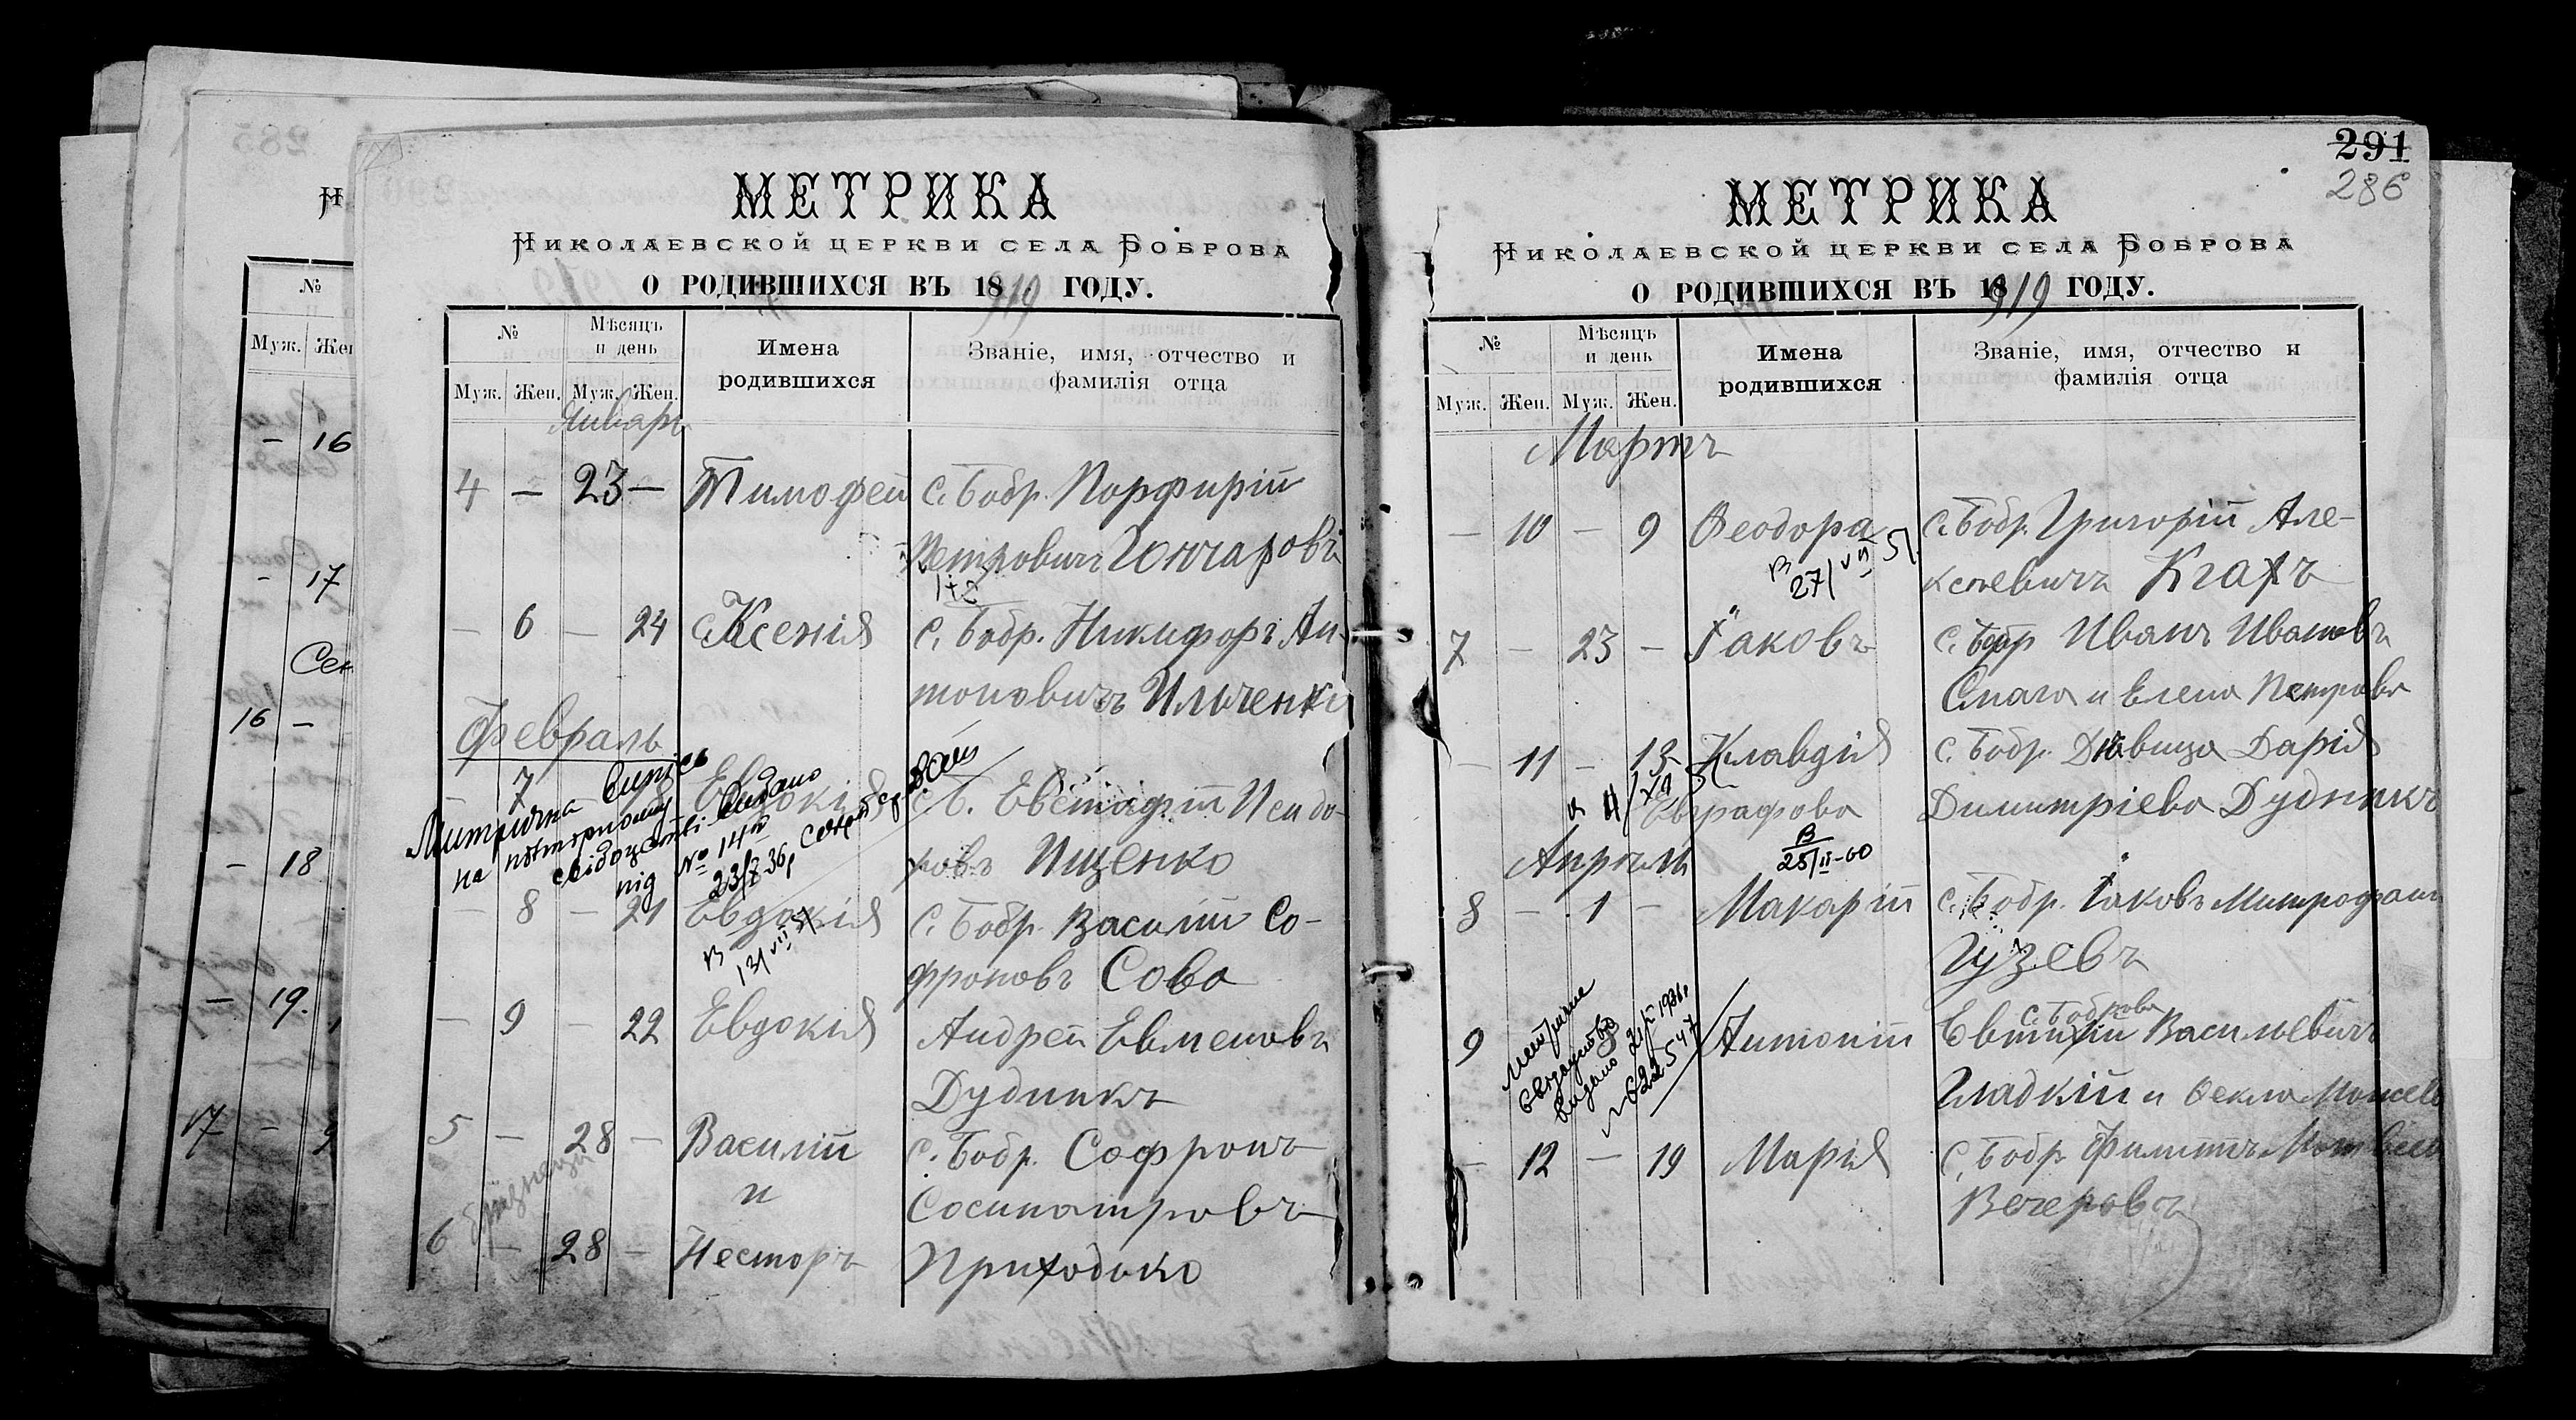 285
№
Муж. Жен
— 16
— 17
Сен
16 —
— 18
— 19.
17 —
МЕТРИКА
НИКОЛАЕВСКОЙ ЦЕРКВИ СЕЛА БОБРОВА
О РОДИВШИХСЯ ВЪ 18 919 ГОДУ.
№
Мѣсяцъ и день
Имена родившихся
Званіе, имя, отчество и фамилія отца
Муж. Жен. Муж. Жен.
Январь
4 — 23 — Тимофей С. Бобр. Порфирій
Петровичъ Гончаровъ
— 6 — 24 Ксенія С. Бобр. Никифоръ Ан-
тоновичъ Ильченко
Февраль
7 Евдокія С. Б. Евстафій Исидо-
ровъ Ищенко
Митрична Випись
на повторному
свідоцтві видано
під № 14
23/X-36,
— 8 — 21 Евдокія С. Бобр. Василій Со-
фроновъ Сова
В
13/VII 51
— 9 — 22 Евдокія Андрей Евменовъ
Дудникъ
5 — 28 — Василій С. Бобр. Софронъ
и Сосипатровъ
близнецы
6 — 28 — Несторъ Приходько
291
286
МЕТРИКА
НИКОЛАЕВСКОЙ ЦЕРКВИ СЕЛА БОБРОВА
О РОДИВШИХСЯ ВЪ 18 919 ГОДУ.
№
Мѣсяцъ и день
Имена родившихся
Званіе, имя, отчество и фамилія отца
Муж. Жен. Муж. Жен.
Мартъ
— 10 — 9 Феодора С. Бобр. Григорій Але-
ксѣевичъ
В
27/VII 51.
7 — 23 — Іаковъ С. Бобр Иванъ Ивановъ
и Елена Петрова
— 11 — 13 Клавдія С. Бобр. Дѣвица Дарія
Евграфова Димитріева Дудникъ
В
25/II-60
Апрѣль
8 — 1 — Макарій С. Бобр. Іаковъ Митрофан
Гузевъ
С. Боброва
9 Антоній Евтихій Васильевичъ
Гладкій и Фекла Моисеев
метричне
свідоцтво
видано
№ 622547
— 12 — 19 Марія С. Бобр. Филиппъ Матвѣев
Вечеровъ